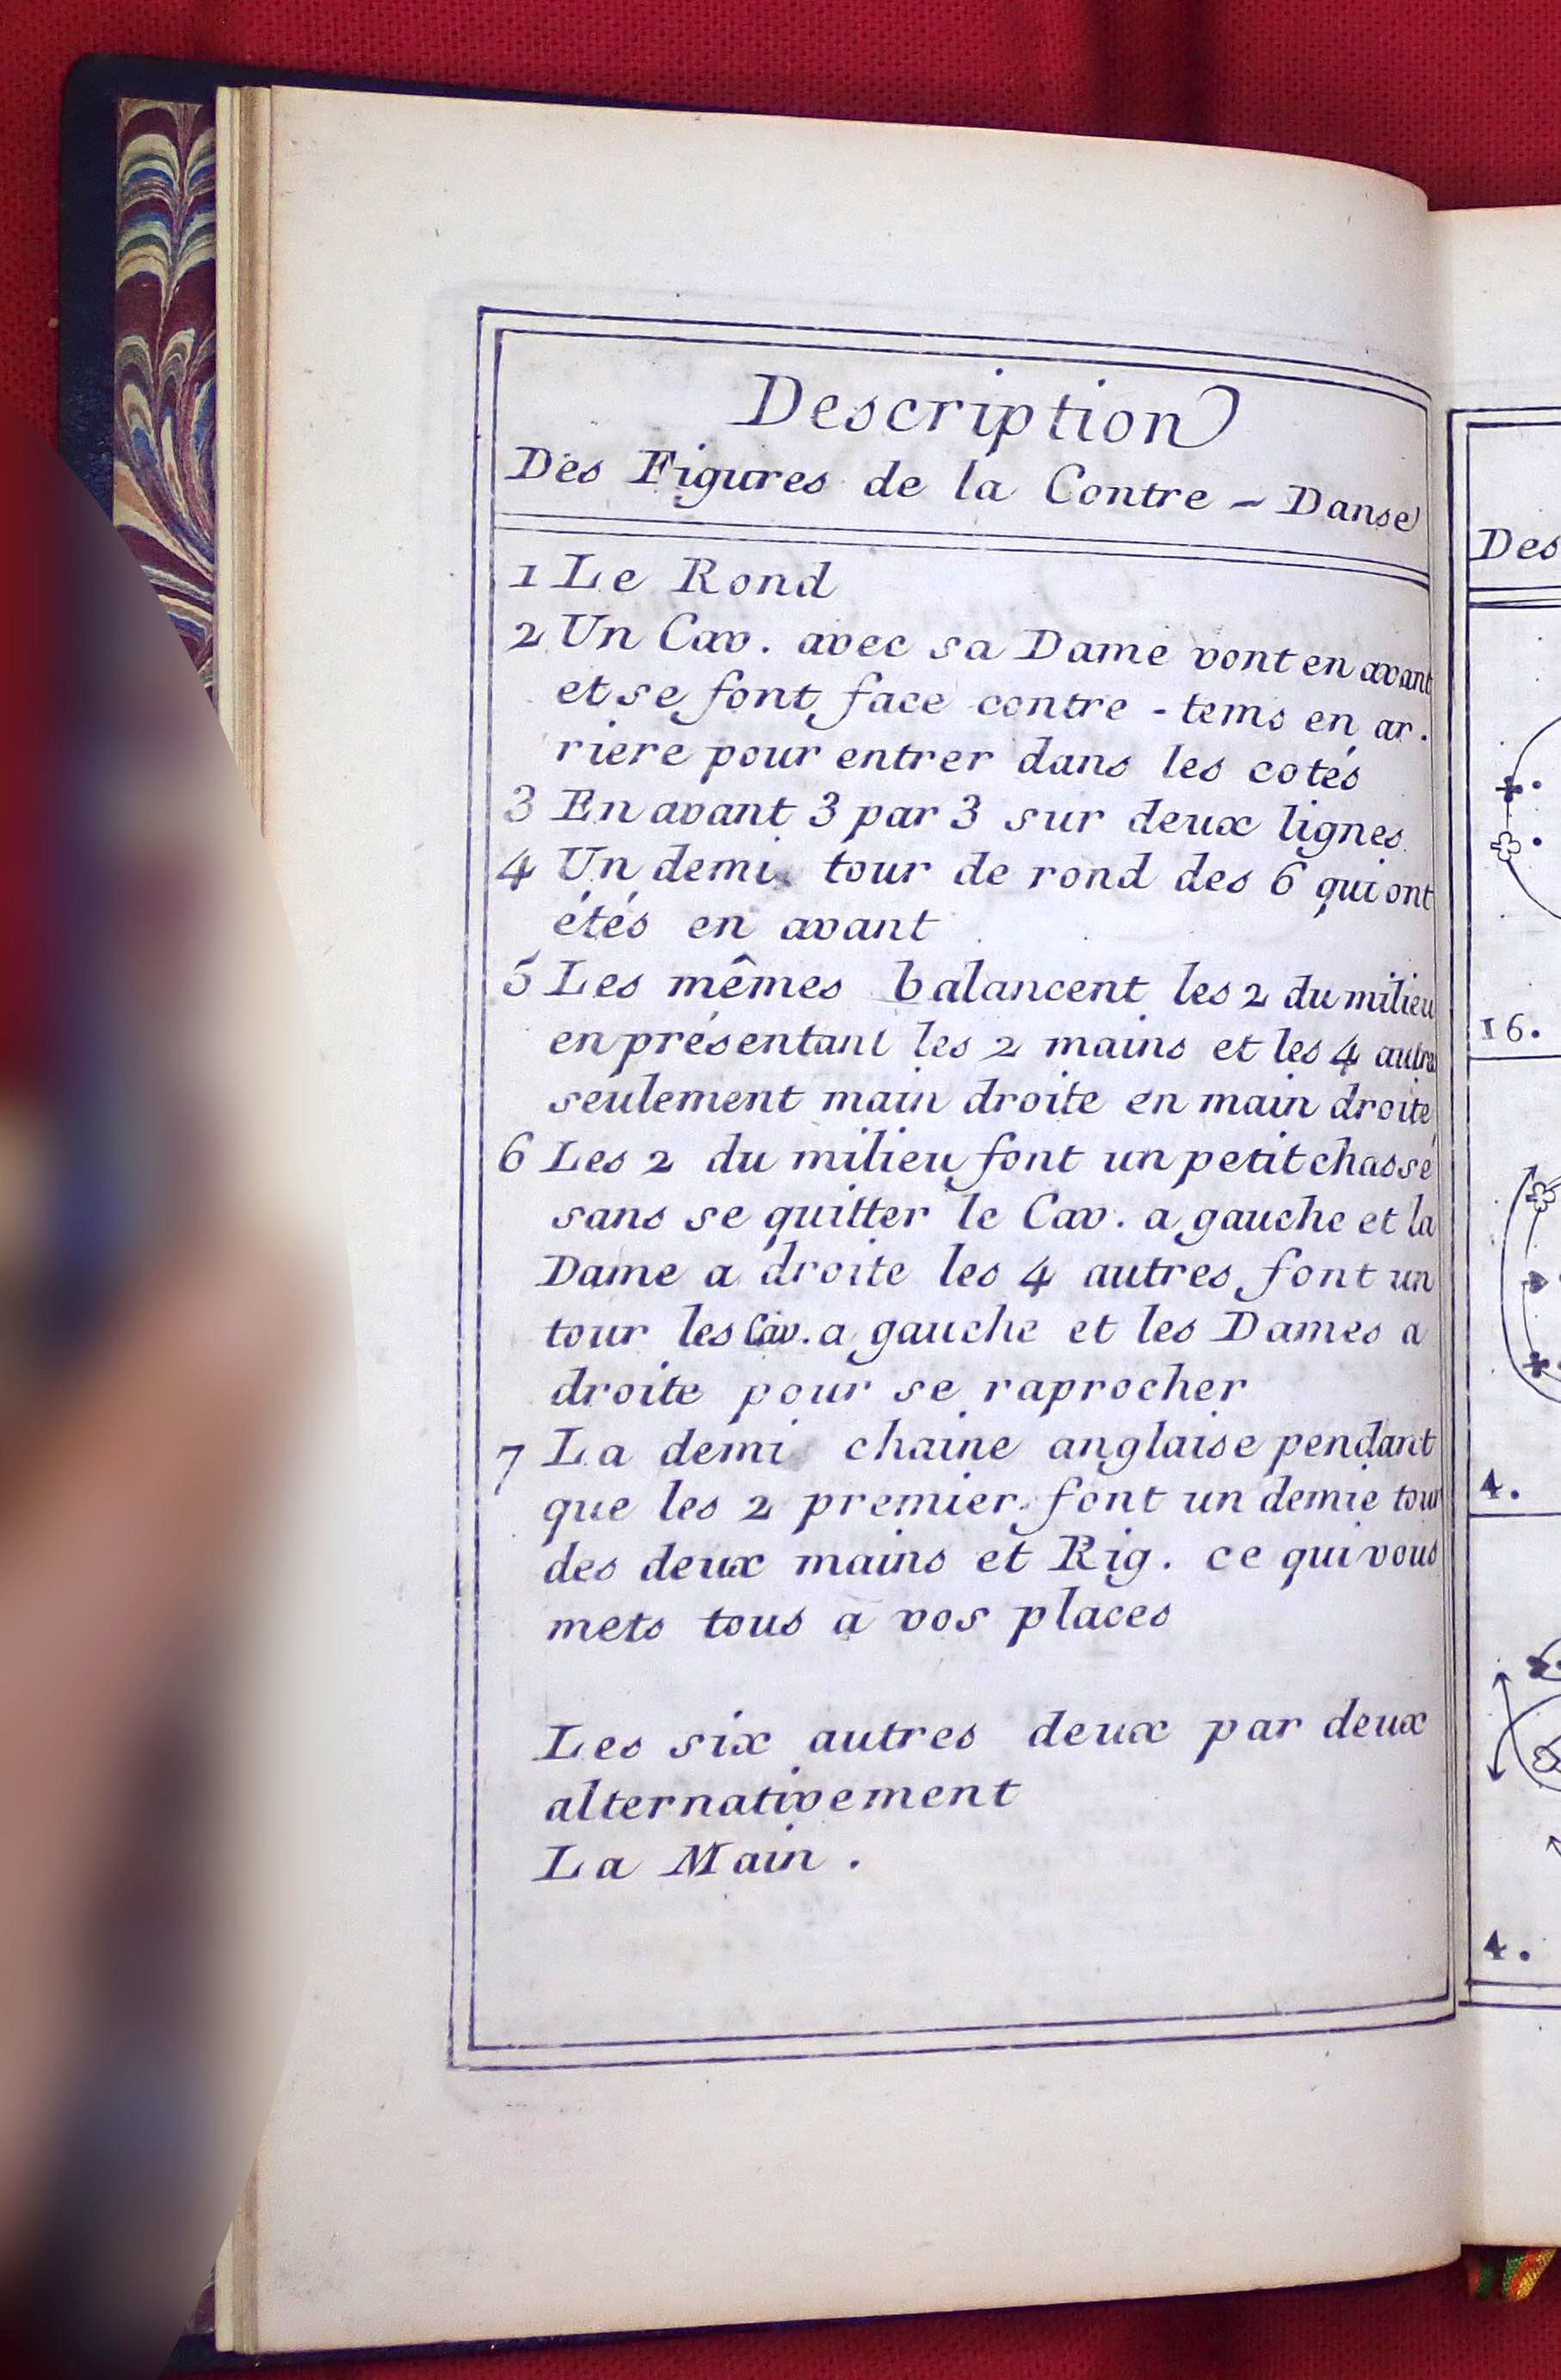 Description
Des Figures de la Contre - Danse
1 Le Rond
2 Un Cav. avec sa Dame vont en avant
et se font face contre - tems en ar.
riere pour entrer dans les cotés
3 En avant 3 par 3 sur deux lignes
4 Un demi tour de rond des 6 qui ont
étés en avant
5 Les mêmes balancent les 2 du milieu
en présentant les 2 mains et les 4 autres
seulement main droite en main droite
6 Les 2 du milieu font un petit chassé
sans se quitter le Cav. a gauche et la
Dame a droite les 4 autres font un
tour les Cav. a gauche et les Dames a
droite pour se raprocher
7 La demi chaine anglaise pendant
que les 2 premier font un demie tour
des deux mains et Rig. ce qui vous
mets tous a vos places
Les six autres deux par deux
alternativement
La Main .
Des
16.
4.
4.